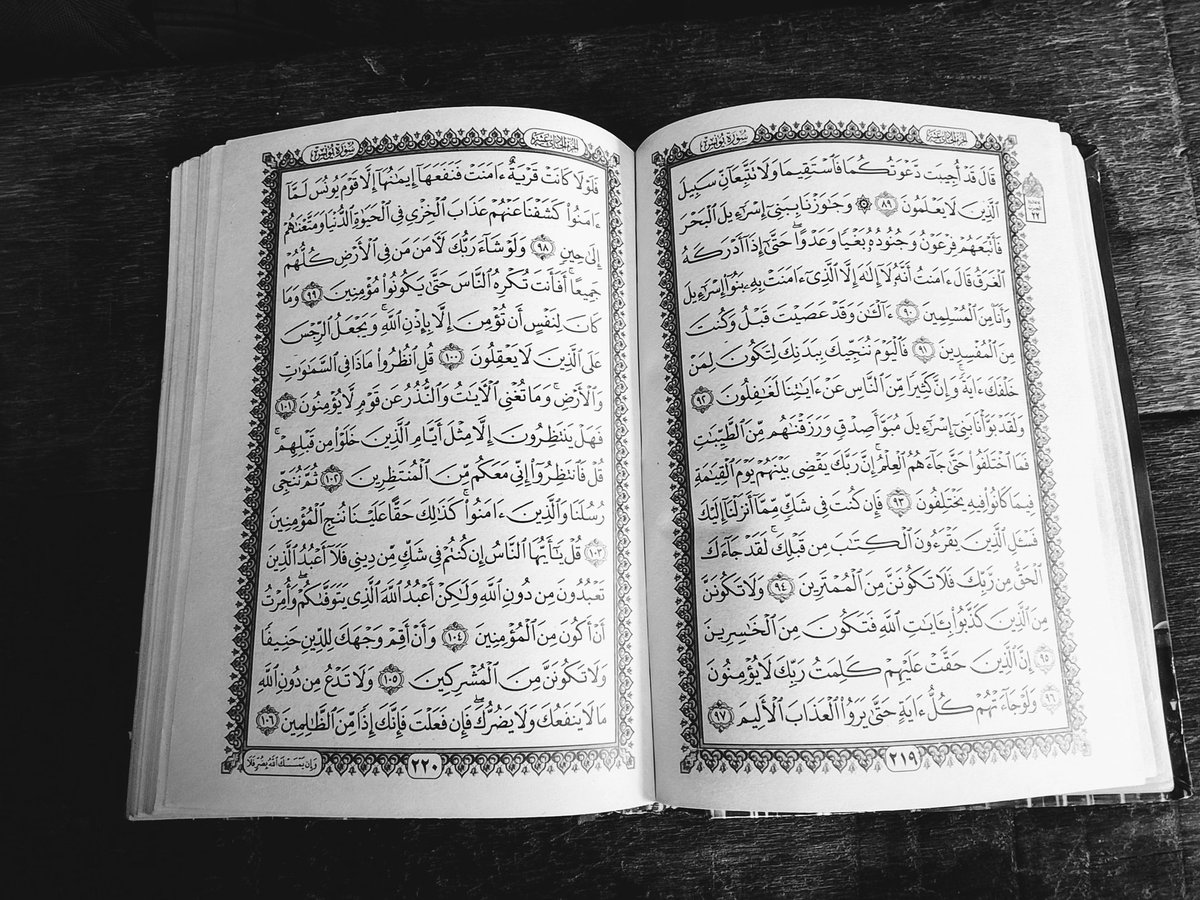 سُورَةُ يُونُسَ
الجُزْءُ الحَادِي عَشَرَ
قَالَ قَدْ أُجِيبَت دَّعْوَتُكُمَا فَٱسْتَقِيمَا وَلَا تَتَّبِعَآنِّ سَبِيلَ
ٱلَّذِينَ لَا يَعْلَمُونَ ٨٩ ۞ وَجَٰوَزْنَا بِبَنِىٓ إِسْرَٰٓءِيلَ ٱلْبَحْرَ
فَأَتْبَعَهُمْ فِرْعَوْنُ وَجُنُودُهُۥ بَغْيًا وَعَدْوًا ۖ حَتَّىٰٓ إِذَآ أَدْرَكَهُ
ٱلْغَرَقُ قَالَ ءَامَنتُ أَنَّهُۥ لَآ إِلَٰهَ إِلَّا ٱلَّذِىٓ ءَامَنَتْ بِهِۦ بَنُوٓا۟ إِسْرَٰٓءِيلَ
وَأَنَا۠ مِنَ ٱلْمُسْلِمِينَ ٩٠ ءَآلْـَٰٔنَ وَقَدْ عَصَيْتَ قَبْلُ وَكُنتَ
مِنَ ٱلْمُفْسِدِينَ ٩١ فَٱلْيَوْمَ نُنَجِّيكَ بِبَدَنِكَ لِتَكُونَ لِمَنْ
خَلْفَكَ ءَايَةً ۚ وَإِنَّ كَثِيرًا مِّنَ ٱلنَّاسِ عَنْ ءَايَٰتِنَا لَغَٰفِلُونَ ٩٢
وَلَقَدْ بَوَّأْنَا بَنِىٓ إِسْرَٰٓءِيلَ مُبَوَّأَ صِدْقٍ وَرَزَقْنَٰهُم مِّنَ ٱلطَّيِّبَٰتِ
فَمَا ٱخْتَلَفُوا۟ حَتَّىٰ جَآءَهُمُ ٱلْعِلْمُ ۚ إِنَّ رَبَّكَ يَقْضِى بَيْنَهُمْ يَوْمَ ٱلْقِيَٰمَةِ
فِيمَا كَانُوا۟ فِيهِ يَخْتَلِفُونَ ٩٣ فَإِن كُنتَ فِى شَكٍّ مِّمَّآ أَنزَلْنَآ إِلَيْكَ
فَسْـَٔلِ ٱلَّذِينَ يَقْرَءُونَ ٱلْكِتَٰبَ مِن قَبْلِكَ ۚ لَقَدْ جَآءَكَ
ٱلْحَقُّ مِن رَّبِّكَ فَلَا تَكُونَنَّ مِنَ ٱلْمُمْتَرِينَ ٩٤ وَلَا تَكُونَنَّ
مِنَ ٱلَّذِينَ كَذَّبُوا۟ بِـَٔايَٰتِ ٱللَّهِ فَتَكُونَ مِنَ ٱلْخَٰسِرِينَ
٩٥ إِنَّ ٱلَّذِينَ حَقَّتْ عَلَيْهِمْ كَلِمَتُ رَبِّكَ لَا يُؤْمِنُونَ
٩٦ وَلَوْ جَآءَتْهُمْ كُلُّ ءَايَةٍ حَتَّىٰ يَرَوُا۟ ٱلْعَذَابَ ٱلْأَلِيمَ ٩٧
٢١٩
سُورَةُ يُونُسَ
الجُزْءُ الحَادِي عَشَرَ
فَلَوْلَا كَانَتْ قَرْيَةٌ ءَامَنَتْ فَنَفَعَهَآ إِيمَٰنُهَآ إِلَّا قَوْمَ يُونُسَ لَمَّآ
ءَامَنُوا۟ كَشَفْنَا عَنْهُمْ عَذَابَ ٱلْخِزْىِ فِى ٱلْحَيَوٰةِ ٱلدُّنْيَا وَمَتَّعْنَٰهُمْ
إِلَىٰ حِينٍ ٩٨ وَلَوْ شَآءَ رَبُّكَ لَـَٔامَنَ مَن فِى ٱلْأَرْضِ كُلُّهُمْ
جَمِيعًا ۚ أَفَأَنتَ تُكْرِهُ ٱلنَّاسَ حَتَّىٰ يَكُونُوا۟ مُؤْمِنِينَ ٩٩ وَمَا
كَانَ لِنَفْسٍ أَن تُؤْمِنَ إِلَّا بِإِذْنِ ٱللَّهِ ۚ وَيَجْعَلُ ٱلرِّجْسَ
عَلَى ٱلَّذِينَ لَا يَعْقِلُونَ ١٠٠ قُلِ ٱنظُرُوا۟ مَاذَا فِى ٱلسَّمَٰوَٰتِ
وَٱلْأَرْضِ ۚ وَمَا تُغْنِى ٱلْـَٔايَٰتُ وَٱلنُّذُرُ عَن قَوْمٍ لَّا يُؤْمِنُونَ ١٠١
فَهَلْ يَنتَظِرُونَ إِلَّا مِثْلَ أَيَّامِ ٱلَّذِينَ خَلَوْا۟ مِن قَبْلِهِمْ ۚ
قُلْ فَٱنتَظِرُوٓا۟ إِنِّى مَعَكُم مِّنَ ٱلْمُنتَظِرِينَ ١٠٢ ثُمَّ نُنَجِّى
رُسُلَنَا وَٱلَّذِينَ ءَامَنُوا۟ ۚ كَذَٰلِكَ حَقًّا عَلَيْنَا نُنجِ ٱلْمُؤْمِنِينَ
١٠٣ قُلْ يَٰٓأَيُّهَا ٱلنَّاسُ إِن كُنتُمْ فِى شَكٍّ مِّن دِينِى فَلَآ أَعْبُدُ ٱلَّذِينَ
تَعْبُدُونَ مِن دُونِ ٱللَّهِ وَلَٰكِنْ أَعْبُدُ ٱللَّهَ ٱلَّذِى يَتَوَفَّىٰكُمْ ۖ وَأُمِرْتُ
أَنْ أَكُونَ مِنَ ٱلْمُؤْمِنِينَ ١٠٤ وَأَنْ أَقِمْ وَجْهَكَ لِلدِّينِ حَنِيفًا
وَلَا تَكُونَنَّ مِنَ ٱلْمُشْرِكِينَ ١٠٥ وَلَا تَدْعُ مِن دُونِ ٱللَّهِ
مَا لَا يَنفَعُكَ وَلَا يَضُرُّكَ ۖ فَإِن فَعَلْتَ فَإِنَّكَ إِذًا مِّنَ ٱلظَّٰلِمِينَ ١٠٦
٢٢٠
وَإِن يَمْسَسْكَ ٱللَّهُ بِضُرٍّ فَلَا